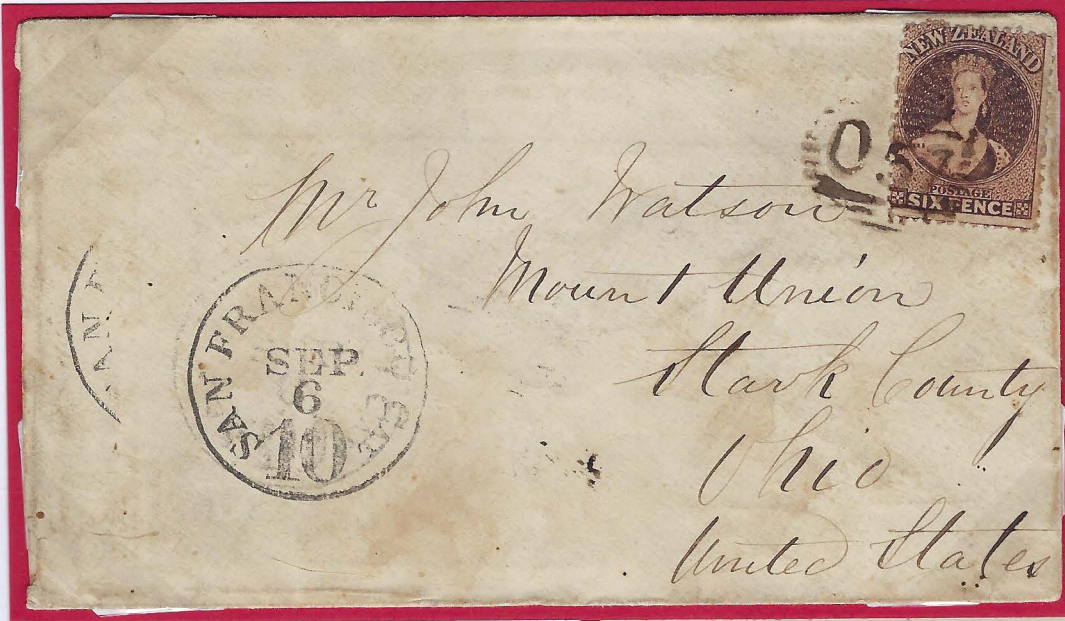 NEW ZEALAND
POSTAGE
SIX PENCE
Mr John Watson
Mount Union
Stark County
Ohio
United States
SAN FRANCISCO
SEP
6
10
SAN F